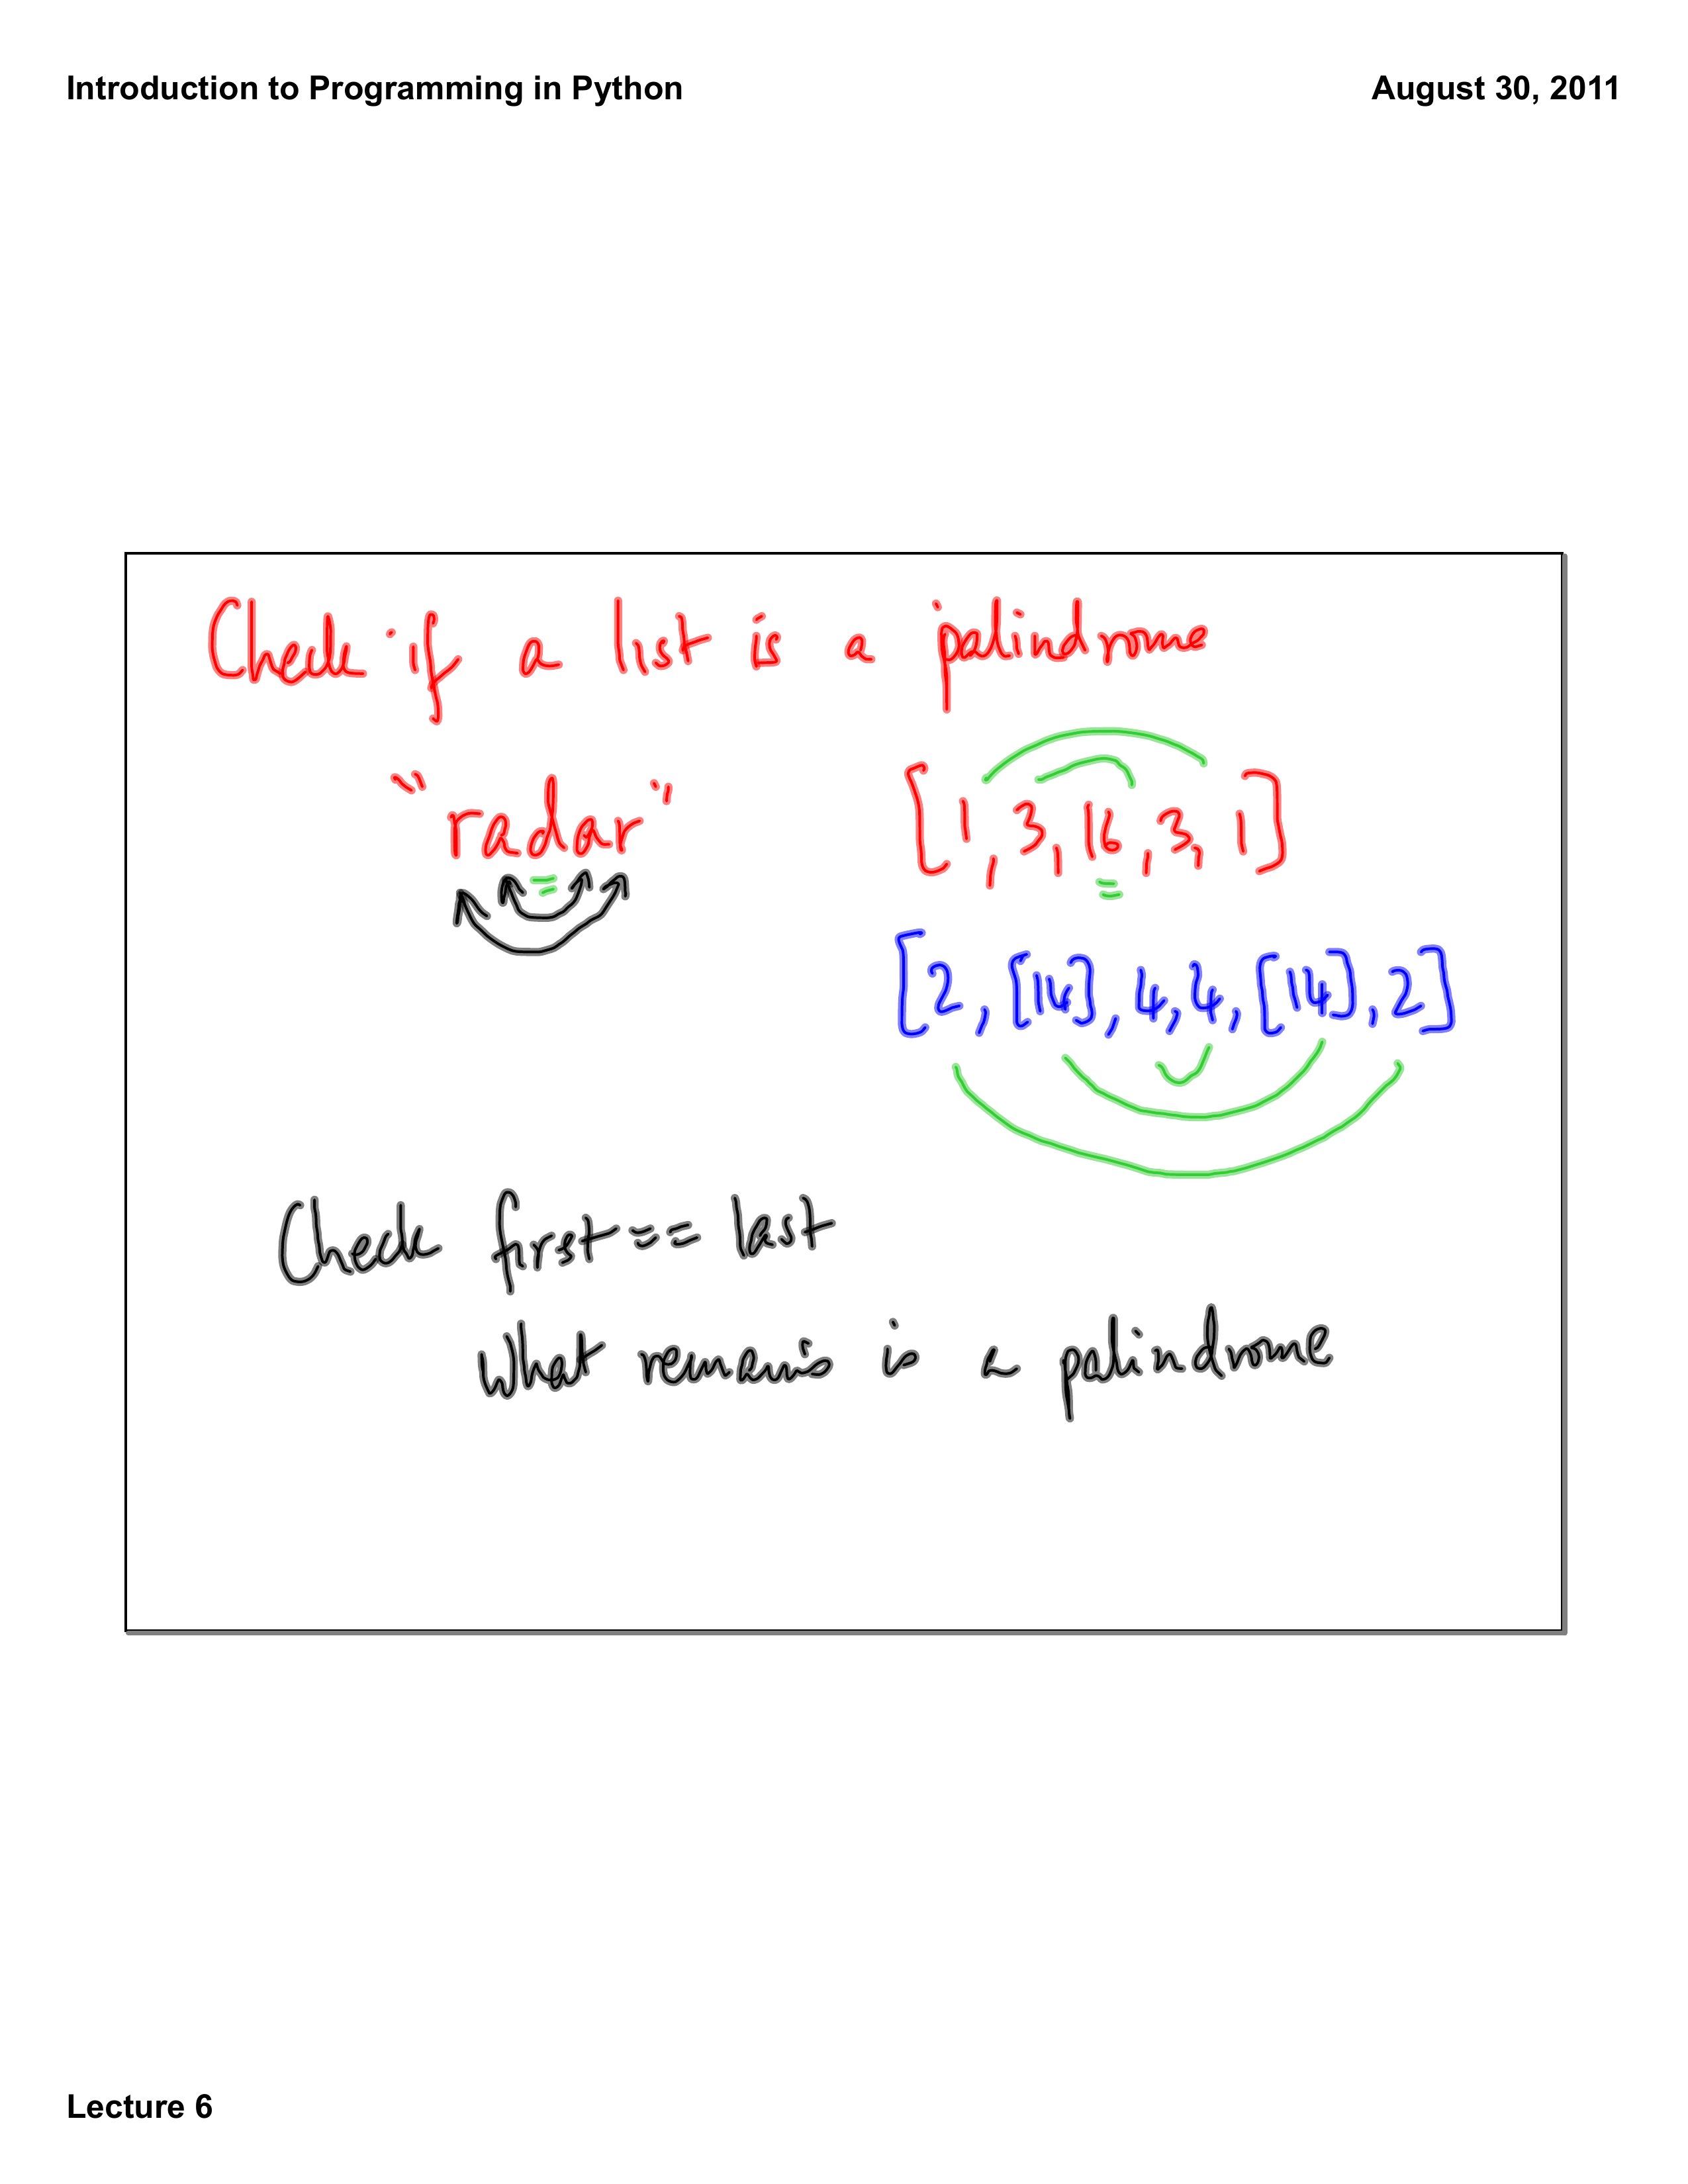 Introduction to Programming in Python August 30, 2011
Check if a list is a palindrome
"radar" [1, 3, 16, 3, 1]
[2, [14], 4, 4, [14], 2]
Check first == last
What remains is a palindrome
Lecture 6